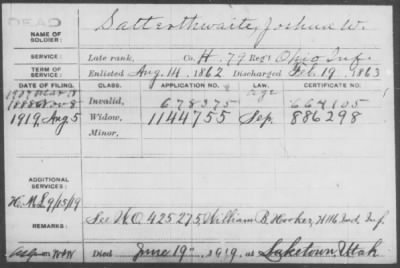 DEAD
NAME OF SOLDIER: Satterthwaite, Joshua W.
SERVICE: Late rank, Co. H. 79 Reg't Ohio Inf.
TERM OF SERVICE: Enlisted Aug. 14, 1862 Discharged Feb. 19, 1863
DATE OF FILING. CLASS. APPLICATION NO. LAW. CERTIFICATE NO.
1888 Nov 8 Invalid, 678375 age 664105
1919, Aug 5 Widow, 1144755 Sep. 886298
Minor,
ADDITIONAL SERVICES:
REMARKS: See W.O. 425275, William B. Hooker, H 116 Ind. Inf.
Died June 19" 1919, at Laketown, Utah